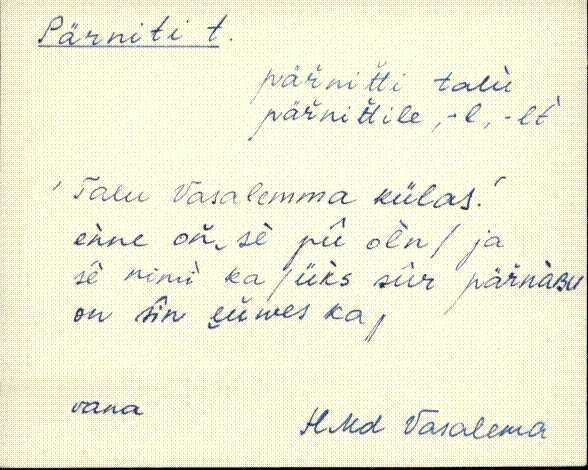 Pärniti t.
päŕnitti talu
päŕnittile, -l, -lt
'Talu Vasalemma külas.'
enne oń, sè pû olǹ / ja
sè nimì ka / ùks sûr pärnàBu
on sîn ka //
vana
HMd Vasalema